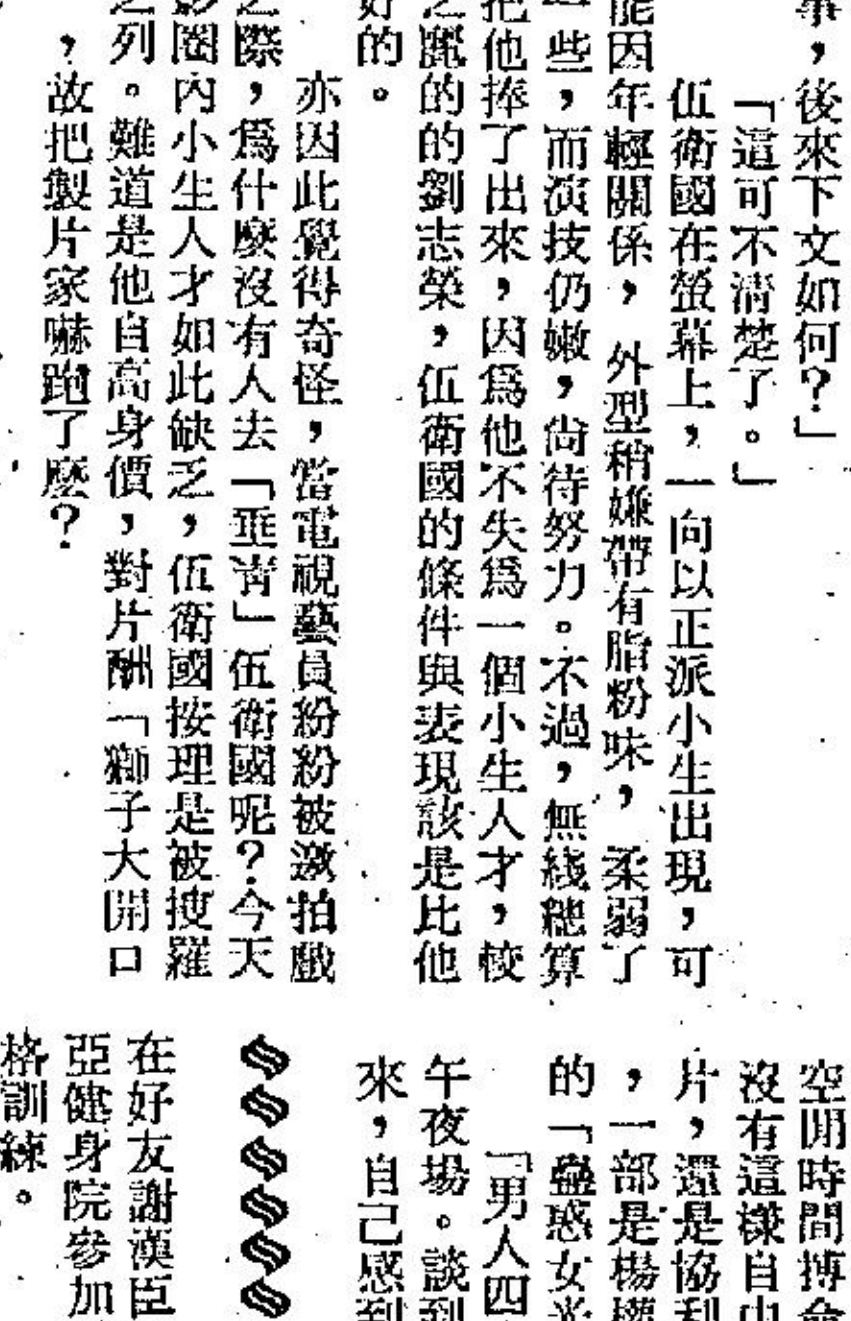 事，後來下文如何？」
「這可不清楚了。」
伍衛國在螢幕上，一向以正派小生出現，可
能因年輕關係，外型稍嫌帶有脂粉味，柔弱了
一些，而演技仍嫩，尙待努力。不過，無綫總算
把他捧了出來，因爲他不失爲一個小生人才，較
之麗的的劉志榮，伍衛國的條件與表現該是比他
好的。
亦因此覺得奇怪，當電視藝員紛紛被邀拍戲
之際，爲什麼沒有人去「垂靑」伍衛國呢？今天
影圈內小生人才如此缺乏，伍衛國按理是被搜羅
之列。難道是他自高身價，對片酬「獅子大開口
，故把製片家嚇跑了麼？
空閒時間搏命
沒有這樣自由
片，還是協利
，一部是楊權
的「蠱惑女光
「男人四
午夜場。談到
來，自己感到
在好友謝漢臣
亞健身院參加
格訓練。